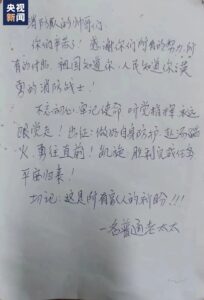 央视新闻
消防救援的帅哥们：
你们辛苦了！感谢你们所有的努力所
有的付出，祖国知道你，人民知道你，英
勇的消防战士！
不忘初心，牢记使命，听党指挥，永远
跟党走！出征：做好自身防护，赴汤蹈
火，勇往直前！凯旋：胜利完成任务
平安归来！
切记：这是所有家人的祈盼！！！
一名普通老太太